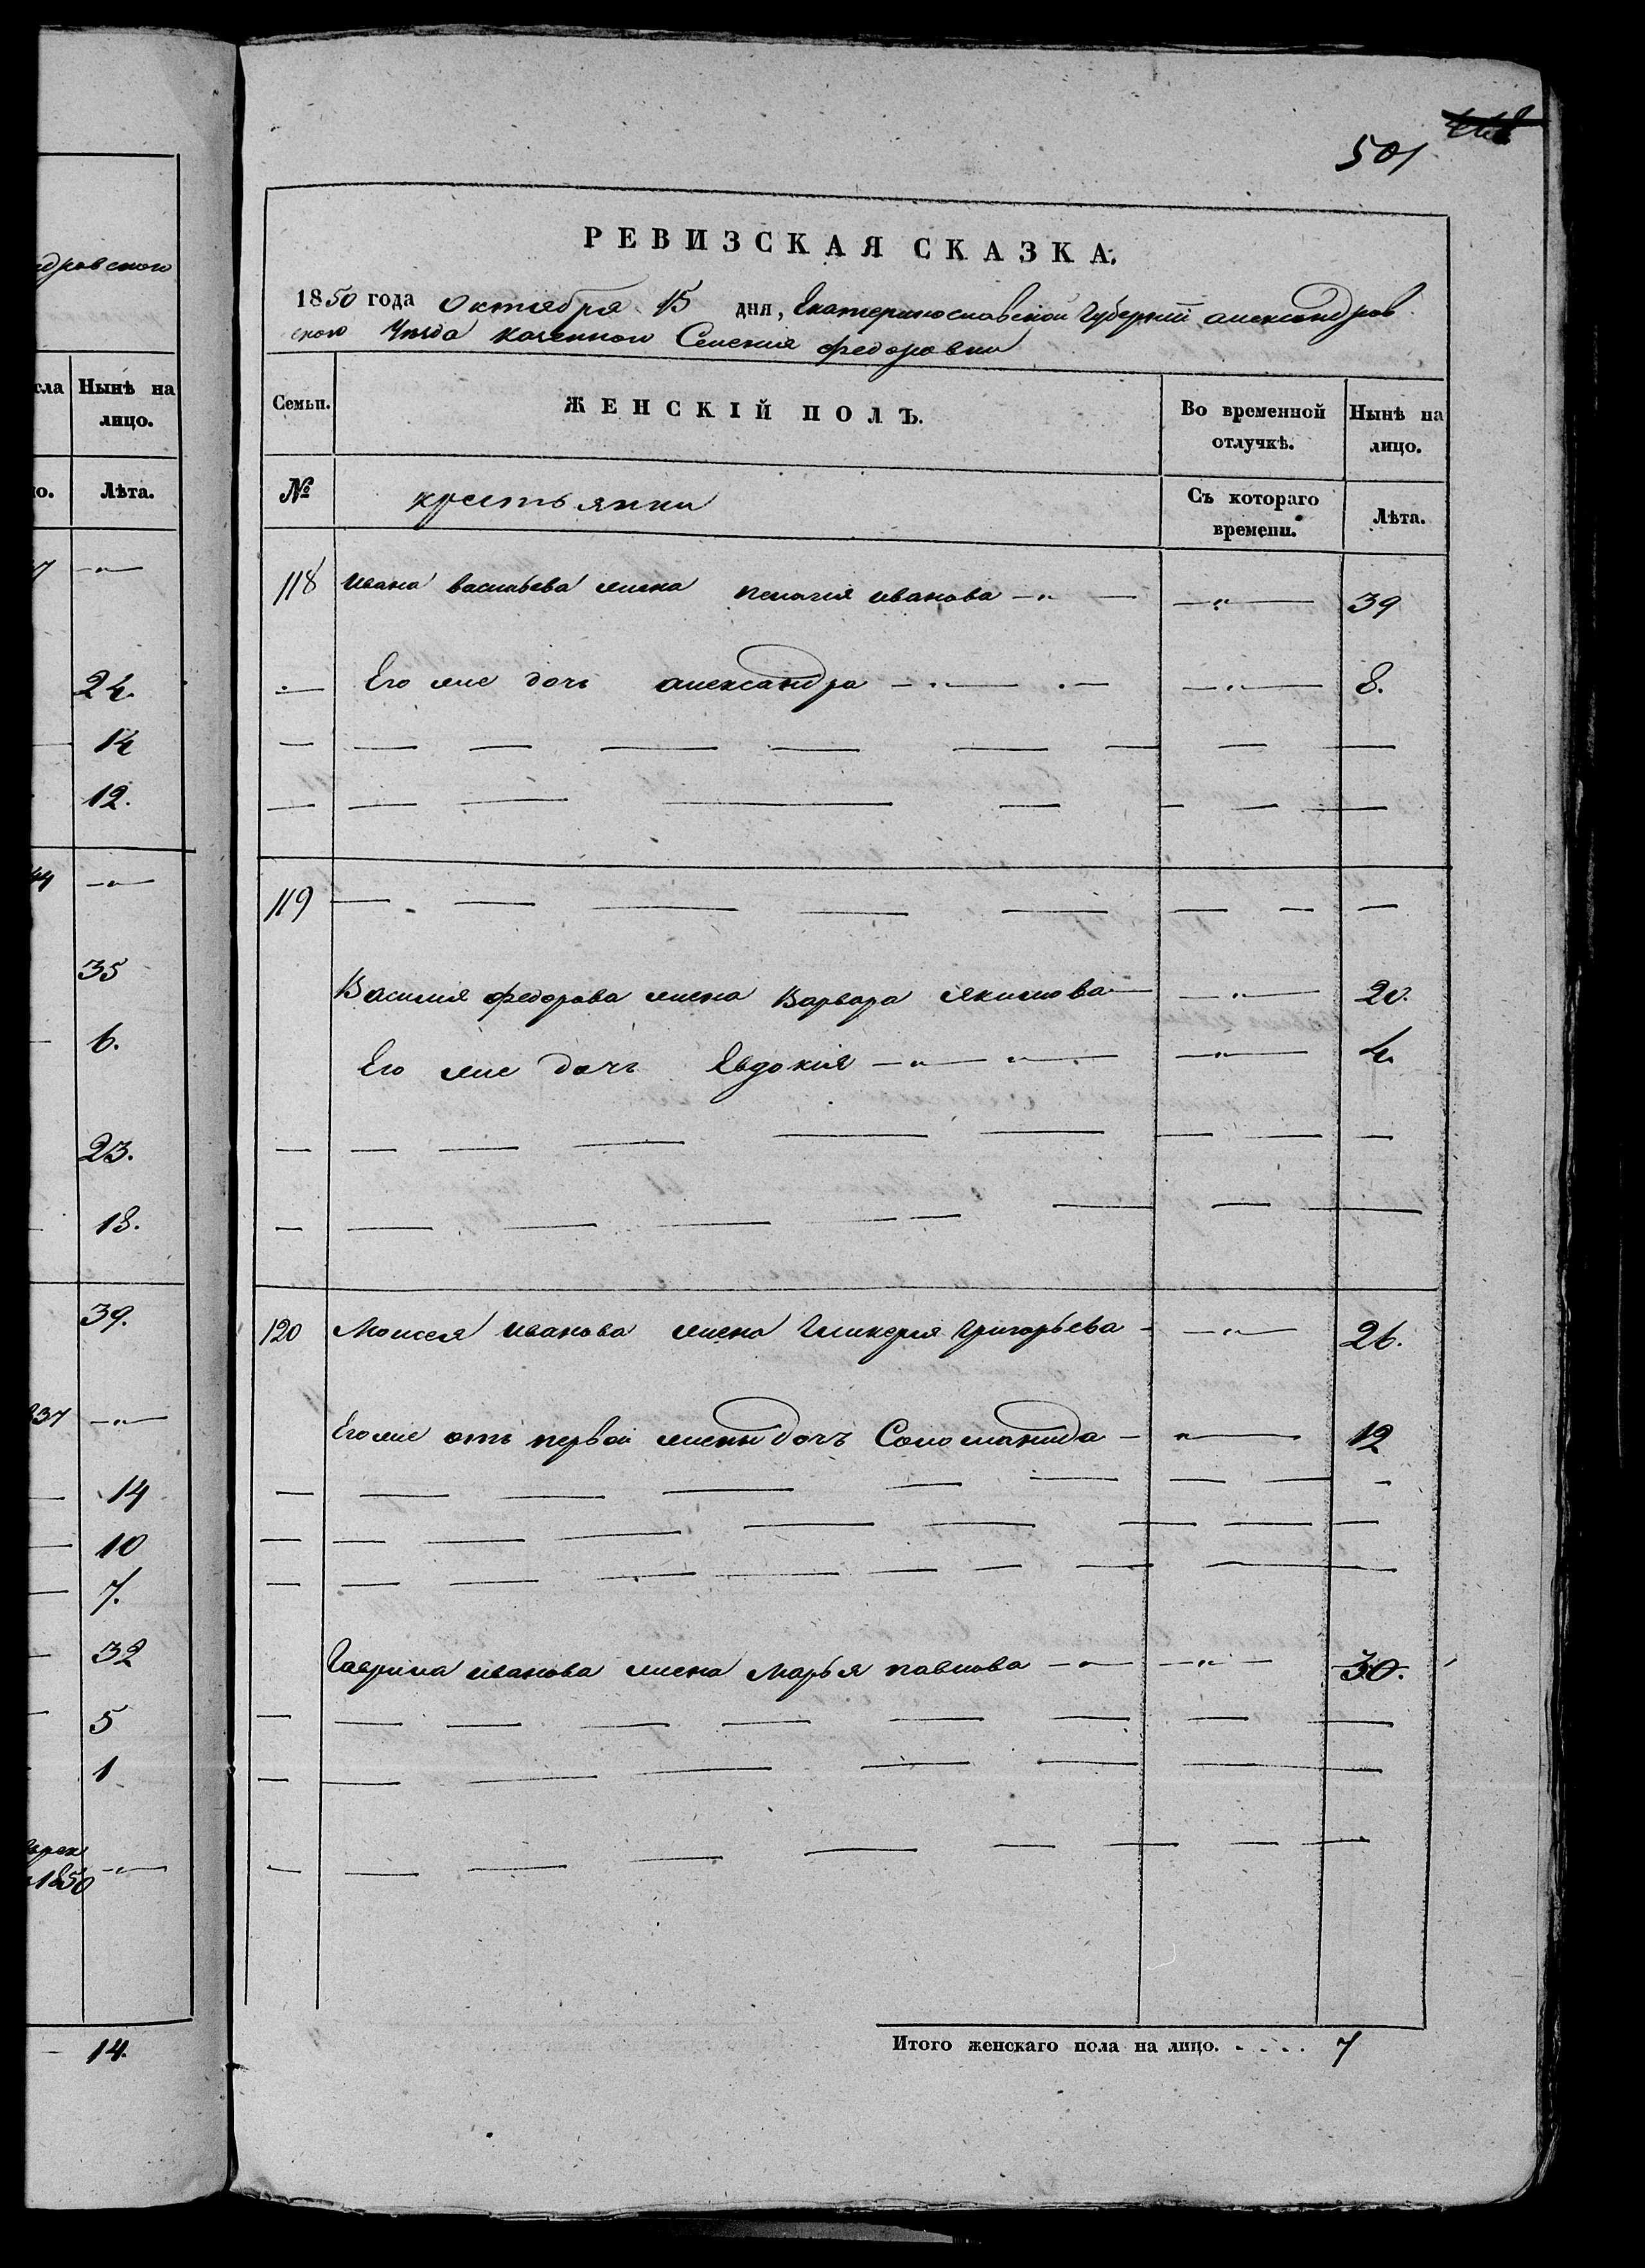 448
501
РЕВИЗСКАЯ СКАЗКА.
1850 года Октября 15 дня, Екатеринославской Губернiи александров
ского Уѣзда казенного Селения федоровки
Семьи. ЖЕНСКIЙ ПОЛЪ. Во временной отлучкѣ. Нынѣ на лицо.
№ крестьянки Съ котораго времени. Лѣта.
118 Ивана васильева жена пелагия иванова — " — — " — 39
Его же дочь александра — " — — " — 8.
119
Василия федорова жена Варвара Якимова — — " — 20.
Его же дочь Евдокия — " — " — — " — 4.
120 Моисея иванова жена Гликерия Григорьева — — " — 26.
Его же отъ первой жены дочъ Соломанида — " — 12
Гаврила иванова жена марья павлова — " — — " — 30.
Итого женскаго пола на лицо. . . . . 7
дровского
сла Нынѣ на лицо.
ло. Лѣта.
7 — " —
24.
14
12.
44 — " —
35
6.
23.
18.
39.
837 — " —
14
10
7.
32
5
1
1850 — " —
14.